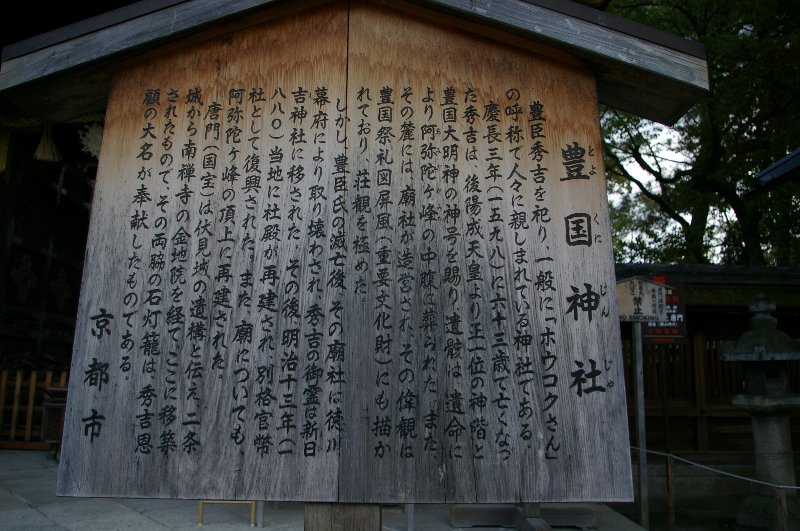 豊国神社
とよくにじんじゃ
豊臣秀吉を祀り、一般に「ホウコクさん」
の呼称で人々に親しまれている神社である。
慶長三年(一五九八)に六十三歳で亡くなっ
た秀吉は、後陽成天皇より正一位の神階と
豊国大明神の神号を賜り、遺骸は遺命に
より阿弥陀ヶ峰の中腹に葬られた。また、
その麓には、廟社が造営され、その偉観は
豊国祭礼図屏風(重要文化財)にも描か
れており、荘観を極めた。
しかし、豊臣氏の滅亡後、その廟社は徳川
幕府により取り壊され、秀吉の御霊は新日
吉神社に移された。その後、明治十三年(一
八八〇)当地に社殿が再建され、別格官幣
社として復興された。また、廟についても、
阿弥陀ヶ峰の頂上に再建された。
唐門(国宝)は伏見城の遺構と伝え、二条
城から南禅寺の金地院を経てここに移築
されたもので、その両脇の石灯籠は、秀吉恩
顧の大名が奉献したものである。
京都市
NO SMOKING